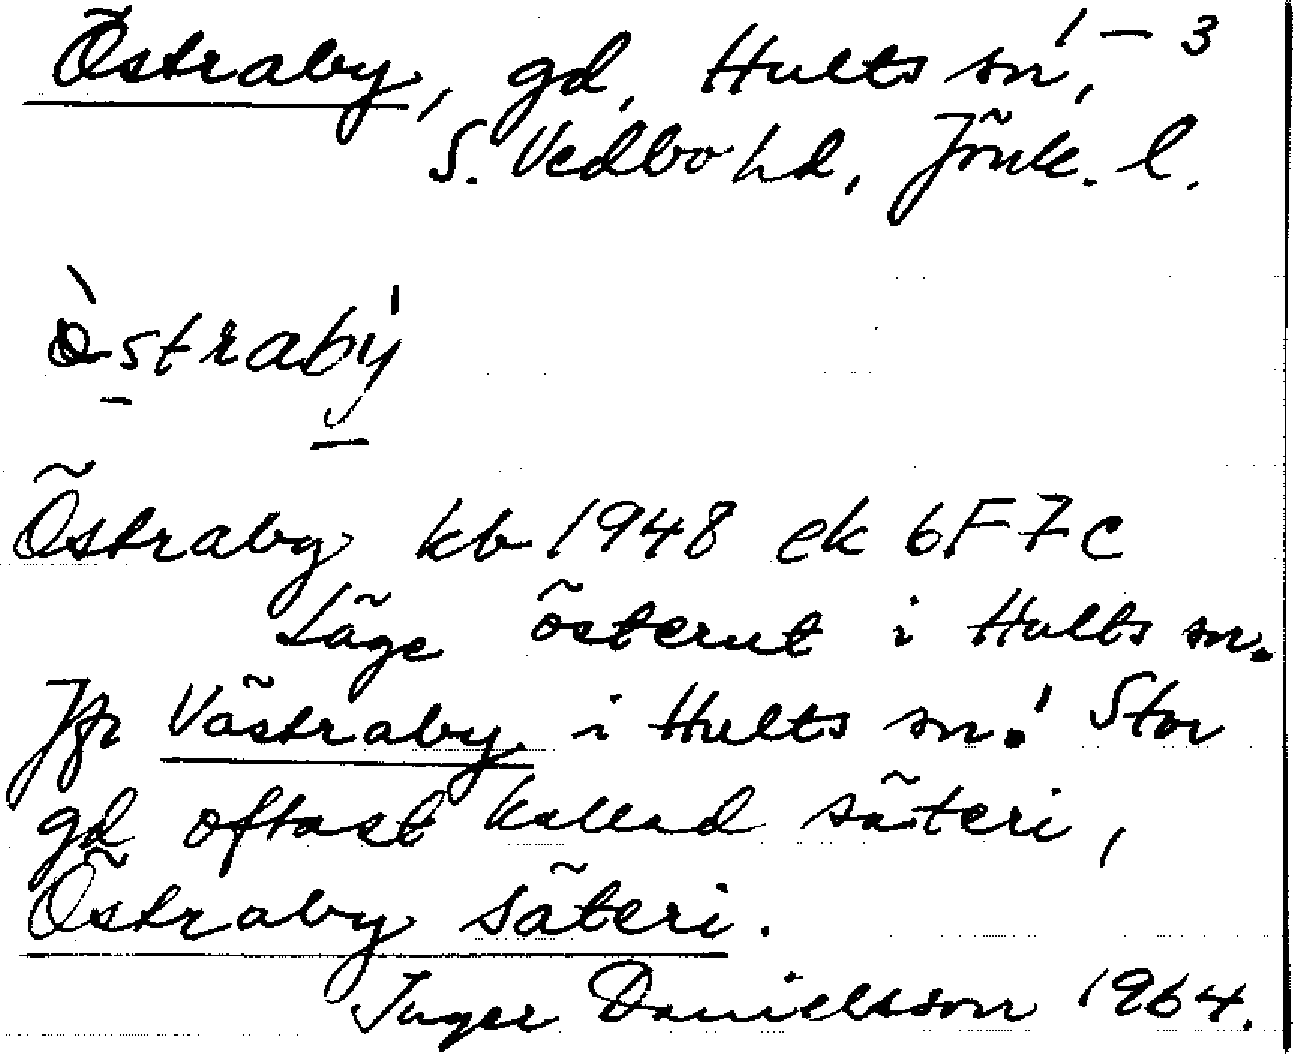 Östraby, gd, Hults sn, 1–3
S. Vedbo hd, Jönk. l.
 òstrabý
Östraby kb 1948 ek 6F7c
Läge österut i Hults sn.
Jfr Västraby i Hults sn! Stor
gd oftast kallad säteri,
Östraby säteri.
Inger Danielsson 1964.